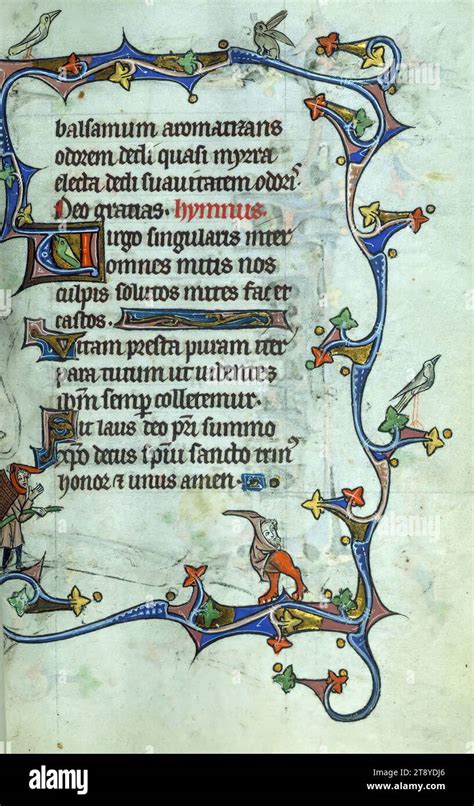 balsamum aromatizans
odorem dedi quasi myrra
electa dedi suavitatem odoris
Deo gratias. hymnus.
Uirgo singularis inter
omnes mitis nos
culpis solutos mites fac et
castos.
Vitam presta puram iter
para tutum ut videntes
ihm semper colletemur.
Sit laus deo pri summo
xpo decus spui sancto trinus
honor & unus amen.
alamy
Image ID: 2T8YDJ6
www.alamy.com